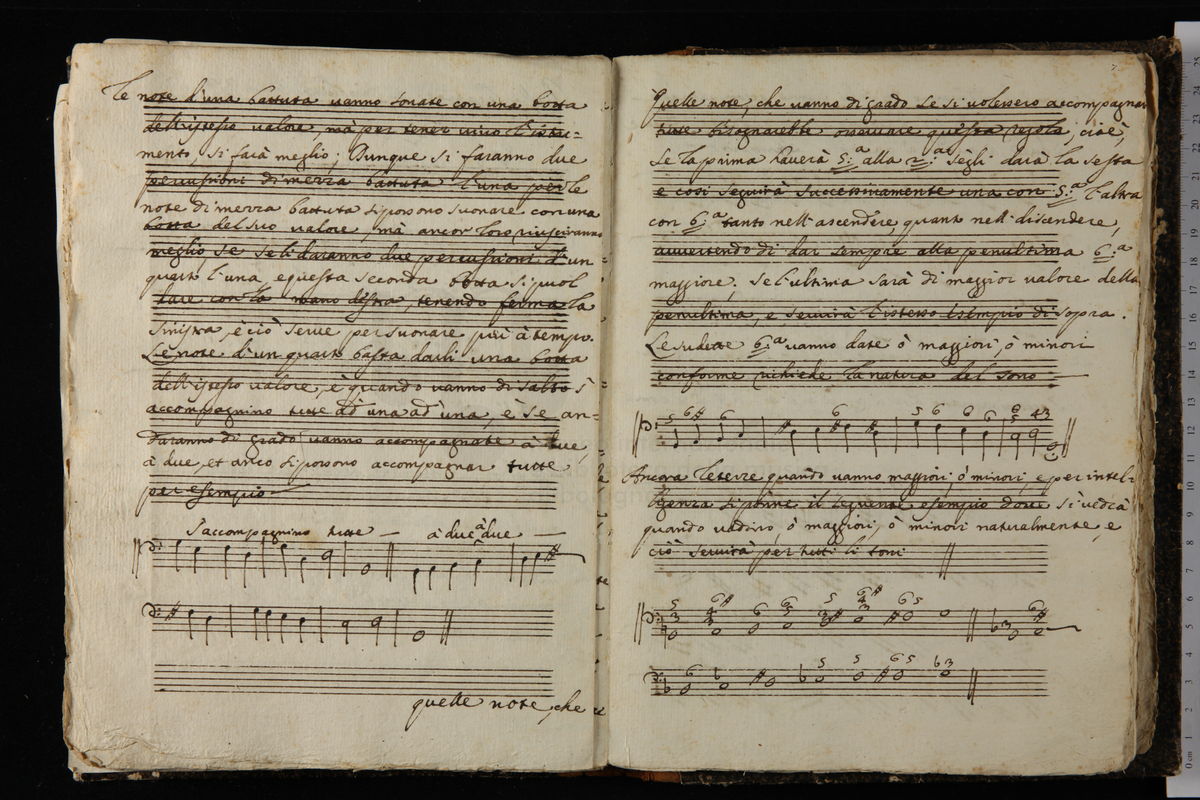 Le note d'una battuta vanno sonate con una botta
dell'istesso valore, mà per tener vivo l'istru=
mento, si farà meglio; Dunque si faranno due
percussioni di mezza battuta l'una per le
note di mezza battuta si possono suonare con una
botta del suo valore, mà ancor loro riusciranno
meglio se seli daranno due percussioni d'un
quarto l'una, e questa seconda botta si puol
dare con la mano destra, tenendo ferma la
sinistra, è ciò serve per suonare più à tempo.
Le note d'un quarto basta darli una botta
dell'istesso valore, è quando vanno di salto s'
accompagnino tutte ad una ad una, è se an=
daranno di grado vanno accompagnate à due,
à due, et anco si possono accompagnar tutte,
per esempio
S'accompagnino tutte — à due à due —
quelle note, che
Quelle note, che vanno di grado se si volessero accompagnar
tutte bisognarebbe osservare questa regola, cioè,
Se la prima haverà 5:ª alla 2:ª segli darà la sesta
e così seguirà successivamente una con 5:ª l'altra
con 6:ª tanto nell'ascendere, quanto nell'discendere,
avvertendo di dar sempre alla penultima 6:ª
maggiore. Se l'ultima sarà di maggior valore della
penultima, e servirà l'istesso esempio di sopra.
Le sudette 6:ª vanno date ò maggiori, ò minori
conforme richiede la natura del sono
5 6# 6 6 5 6 6 6 6 5 43
Ancora le terze quando vanno maggiori, ò minori, e per intel=
ligenza si pone il seguente esempio dove si vedrà
quando vadino, ò maggiori, ò minori naturalmente, e
ciò servirà per tutti li toni